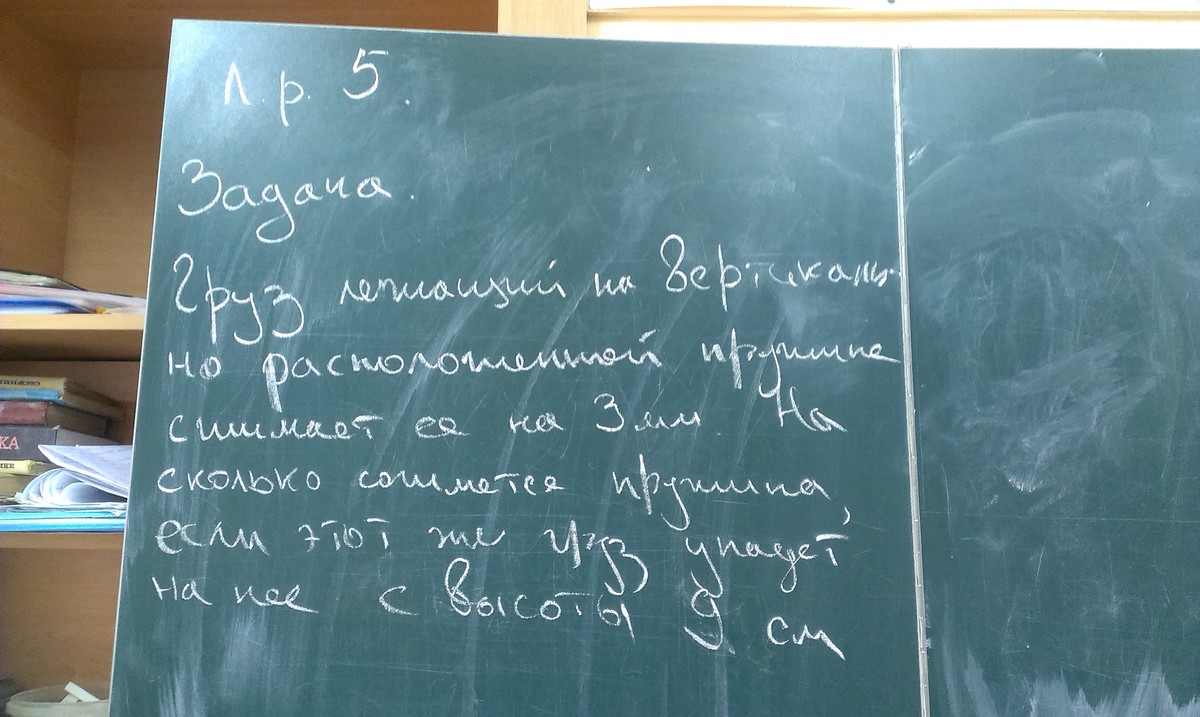 Л. р. 5.
Задача.
Груз лежащий на вертикаль-
но расположенной пружине
сжимает ее на 3 мм На
сколько сожмется пружина,
если этот же груз упадет
на нее с высоты 9 см
КА